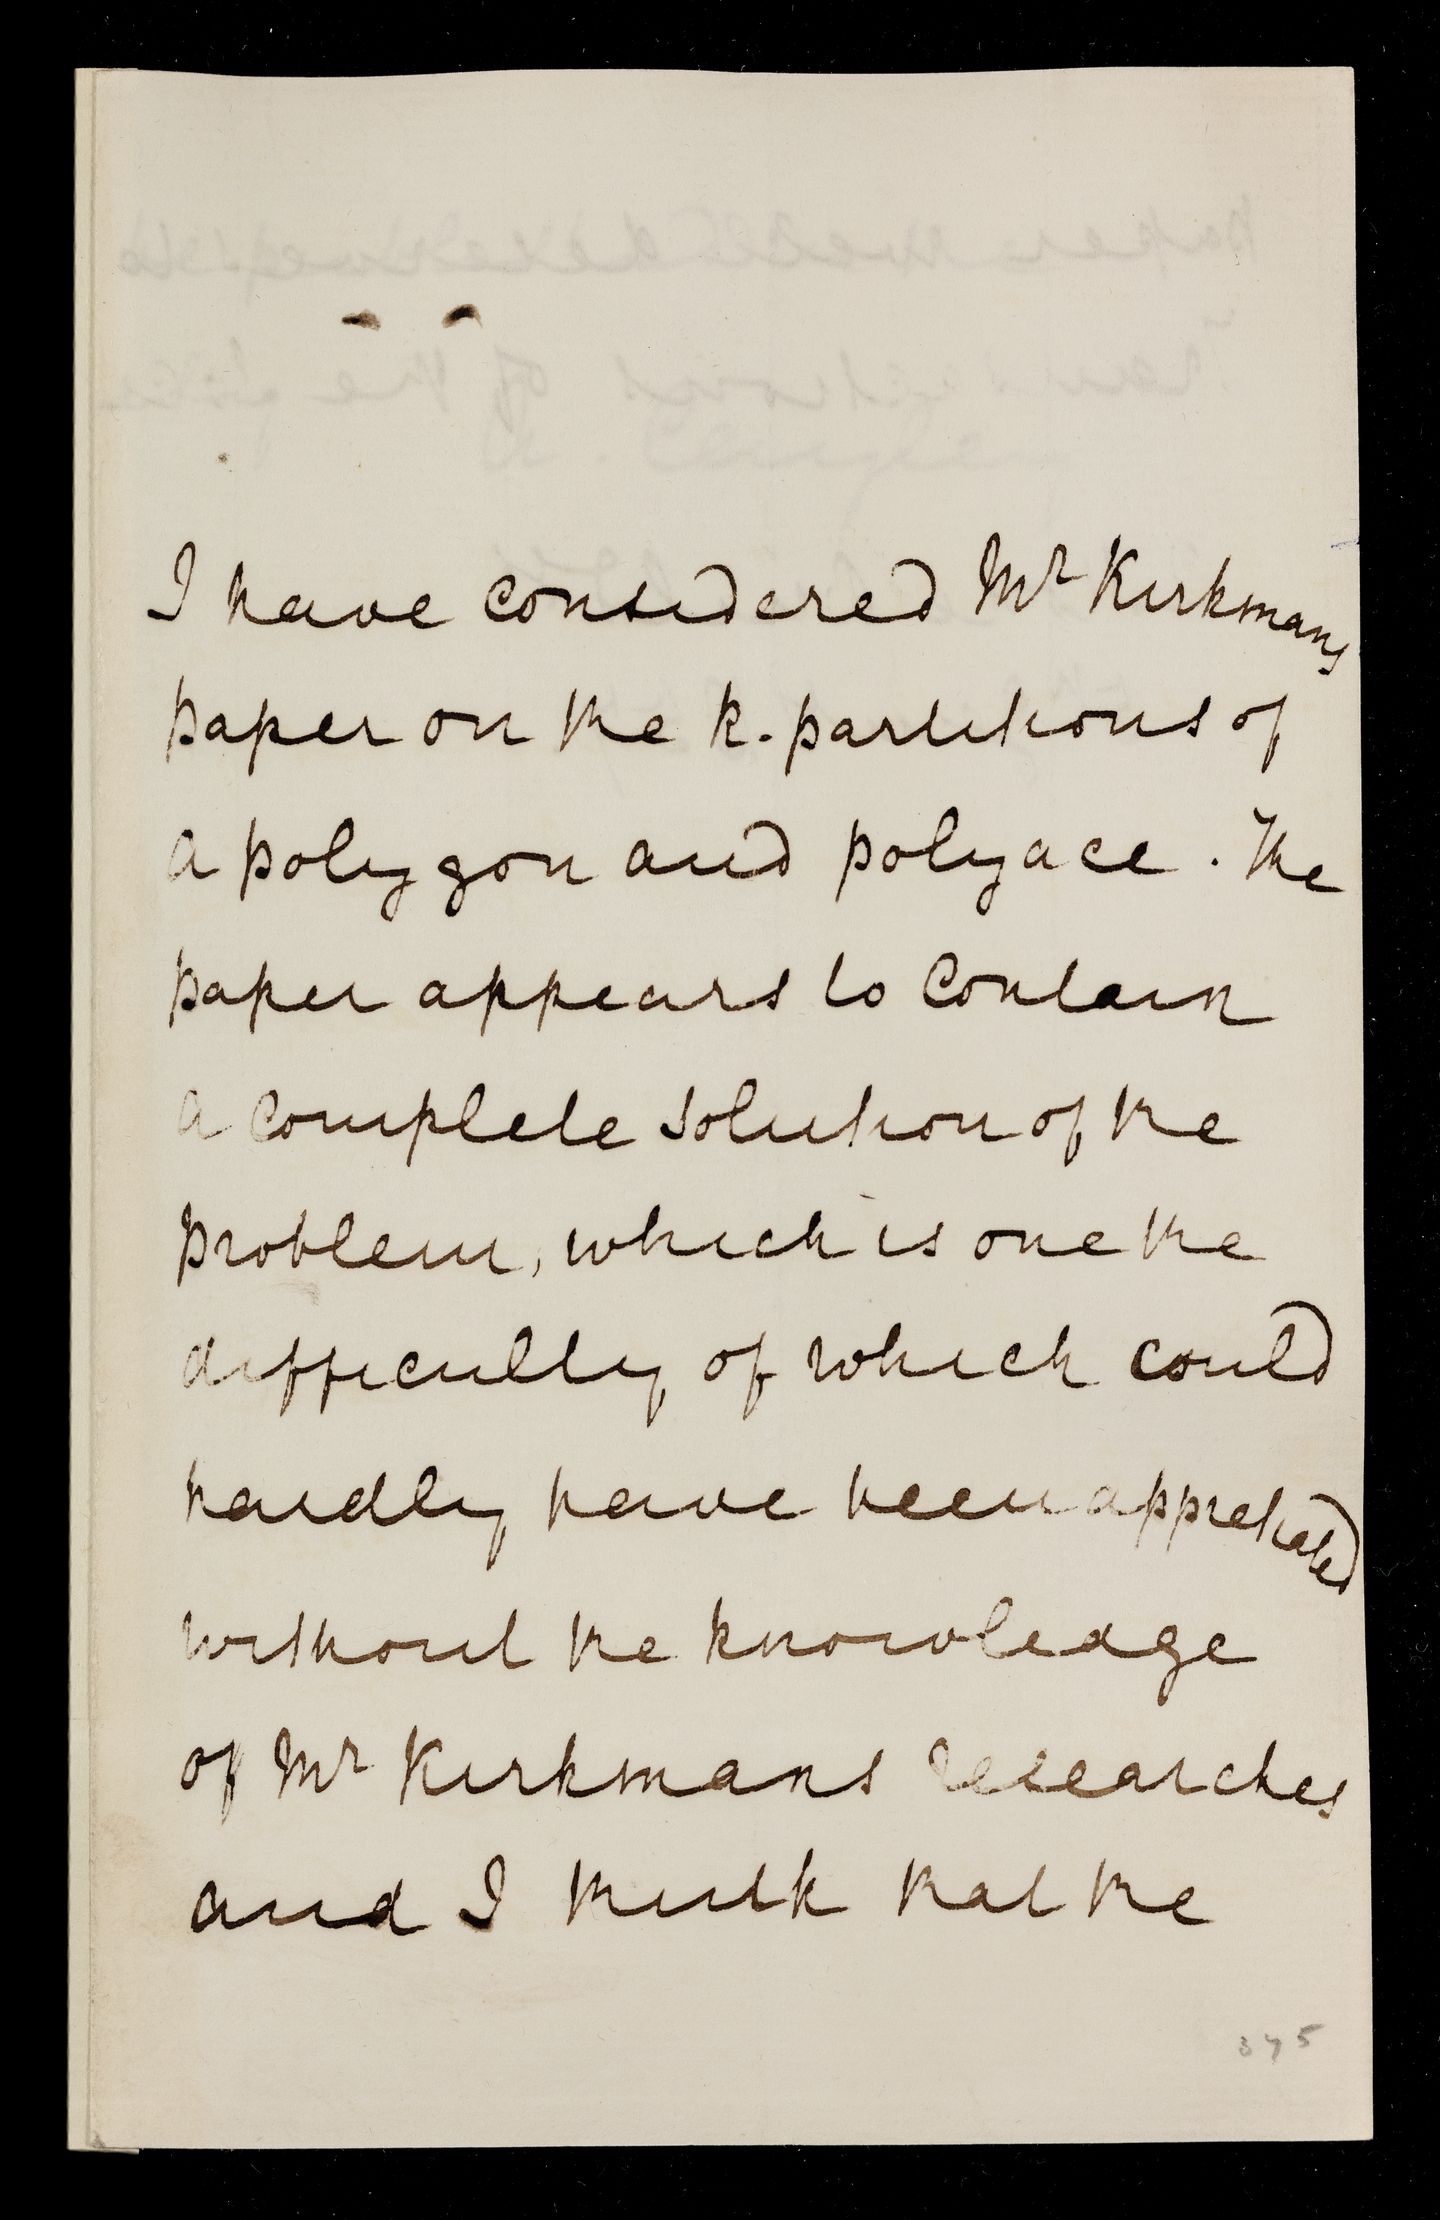 I have considered Mr Kirkmans
paper on the k-partitions of
a polygon and polyace. The
paper appears to contain
a complete solution of the
problem, which is one the
difficulty of which could
hardly have been appretiated
without the knowledge
of Mr Kirkmans researches
and I think that the
375